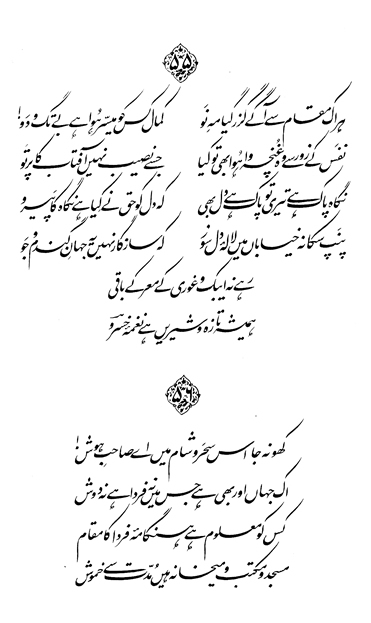 ۵۵
ہر اک مقام سے آگے گزر گیا مہِ نو
کمال کس کو میسّر ہوا ہے بے تگ و دو!
نفَس کے زور سے وہ غنچہ وا ہُوا بھی تو کیا
جسے نصیب نہیں آفتاب کا پرتو
نگاہ پاک ہے تیری تو پاک ہے دل بھی
کہ دل کو حق نے کیا ہے نگاہ کا پَیرو
پنپ سکا نہ خیاباں میں لالۂ دل سوز
کہ سازگار نہیں یہ جہانِ گندم و جو
رہے نہ ایبک و غوری کے معرکے باقی
ہمیشہ تازہ و شیریں ہے نغمۂ خسروؔ
۵۶
کھو نہ جا اس سحَر و شام میں اے صاحبِ ہوش!
اک جہاں اور بھی ہے جس میں نہ فردا ہے نہ دوش
کس کو معلوم ہے ہنگامۂ فردا کا مقام
مسجد و مکتب و میخانہ ہیں مُدّت سے خموش